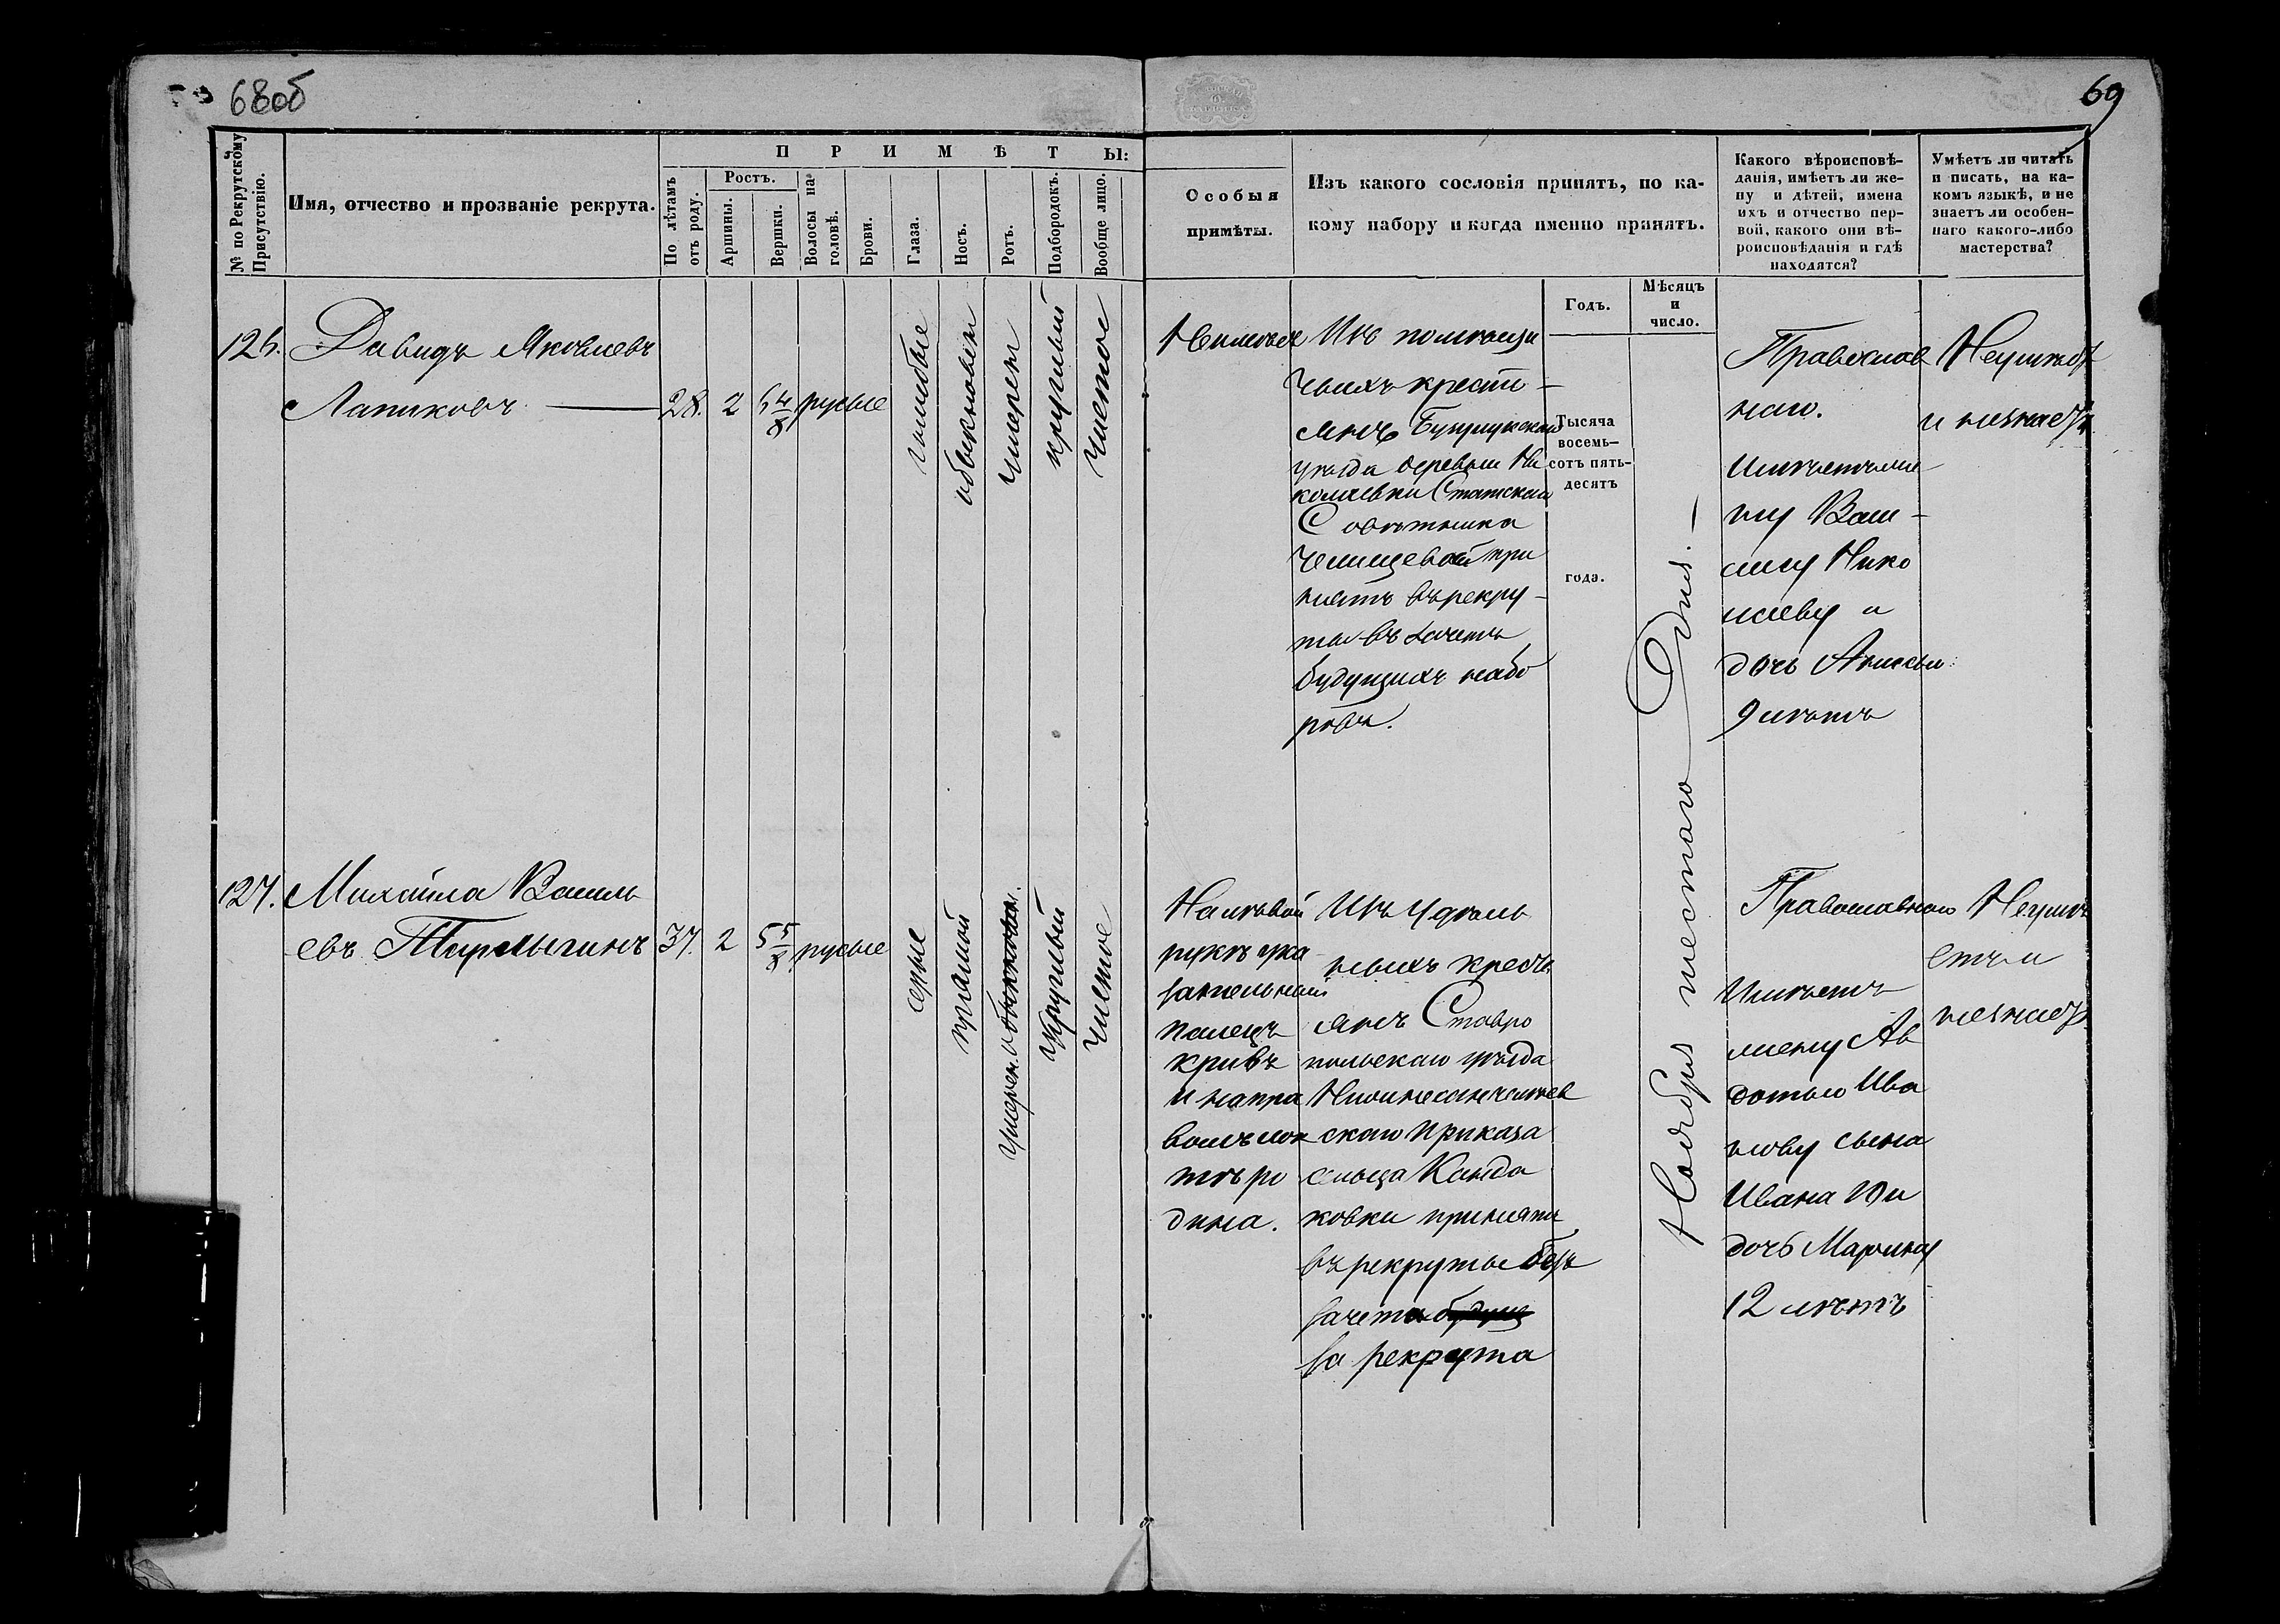 68об
69
№ по Рекрутскому Присутствію.
Имя, отчество и прозваніе рекрута.
ПРИМѢТЫ:
По лѣтамъ отъ роду.
Ростъ.
Аршины.
Вершки.
Волосы на головѣ.
Брови.
Глаза.
Носъ.
Ротъ.
Подбородокъ.
Вообще лицо.
Особыя
примѣты.
Изъ какого сословія принятъ, по ка-
кому набору и когда именно принятъ.
Годъ.
Мѣсяцъ
и
число.
Какого вѣроисповѣ-
данія, имѣетъ ли же-
ну и дѣтей, имена
ихъ и отчество пер-
вой, какого они вѣ-
роисповѣданія и гдѣ
находятся?
Умѣетъ ли читать
и писать, на ка-
комъ языкѣ, и не
знаетъ ли особен-
наго какого-либо
мастерства?
126.
Давидъ Яковлевъ
Лапиковъ
28.
2
русые
голубые
обыкновен
умерен
круглый
чистое
Неимѣетъ
Изъ помѣщи
чьихъ крестi-
янъ Бузулукскаго
уѣзда деревни Ни
колаевки Статскаго
Совѣтника
Челищева при
нятъ врекру-
ты въ зачетъ
будущихъ набо
ровъ.
Тысяча
восемь-
сотъ пять-
десятъ
года.
Ноября шестаго Дня.
Православ
наго.
Имѣетъ же
ну Васи-
лису Нико
лаеву и
дочь Анисью
9 лѣтъ
Неумѣетъ
и незнаетъ
127.
Михайла Василь
евъ
37.
2
5 5/8
русые
серые
прямой
умерен. обыкновен.
круглый
чистое
На лѣвой
рукѣ ука
зательный
палецъ
кривъ
и на пра
вомъ лок
тѣ ро
дина.
Изъ Удѣль
ныхъ кресть
янъ Ставро
польскаго уѣзда
скаго приказа
сельца Канда
ковки принятъ
въ рекруты безъ
зачета будущ
за рекрута
Православнаго
Имѣетъ
жену Ав
дотью Ива
нову сына
Ивана 10 и
дочь Марину
12 лѣтъ
Неумѣ
етъ и
незнаетъ